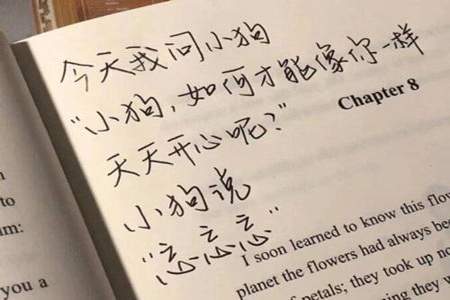 今天我问小狗
“小狗，如何才能像你一样
天天开心呢？”
小狗说
“忘忘忘”
Chapter 8
I soon learned to know this flow
planet the flowers had always be
of petals; they took up no
to
m:
you a